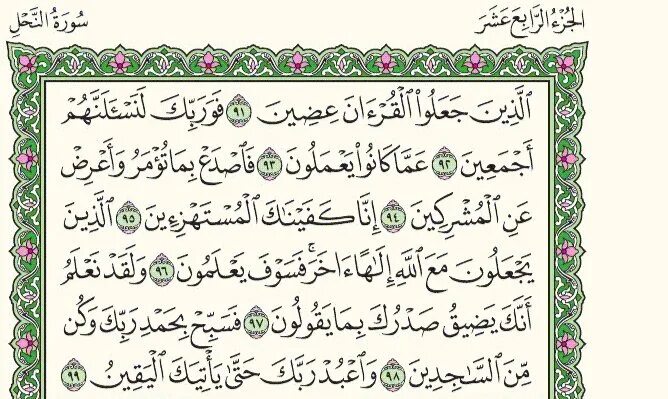 الجُزْءُ الرَّابِعَ عَشَرَ
سُورَةُ النَّحْلِ
الَّذِينَ جَعَلُوا۟ الْقُرْءَانَ عِضِينَ ٩١ فَوَرَبِّكَ لَنَسْـَٔلَنَّهُمْ
أَجْمَعِينَ ٩٢ عَمَّا كَانُوا۟ يَعْمَلُونَ ٩٣ فَاصْدَعْ بِمَا تُؤْمَرُ وَأَعْرِضْ
عَنِ الْمُشْرِكِينَ ٩٤ إِنَّا كَفَيْنَاكَ الْمُسْتَهْزِءِينَ ٩٥ الَّذِينَ
يَجْعَلُونَ مَعَ اللَّهِ إِلَٰهًا ءَاخَرَ ۚ فَسَوْفَ يَعْلَمُونَ ٩٦ وَلَقَدْ نَعْلَمُ
أَنَّكَ يَضِيقُ صَدْرُكَ بِمَا يَقُولُونَ ٩٧ فَسَبِّحْ بِحَمْدِ رَبِّكَ وَكُن
مِّنَ السَّٰجِدِينَ ٩٨ وَاعْبُدْ رَبَّكَ حَتَّىٰ يَأْتِيَكَ الْيَقِينُ ٩٩